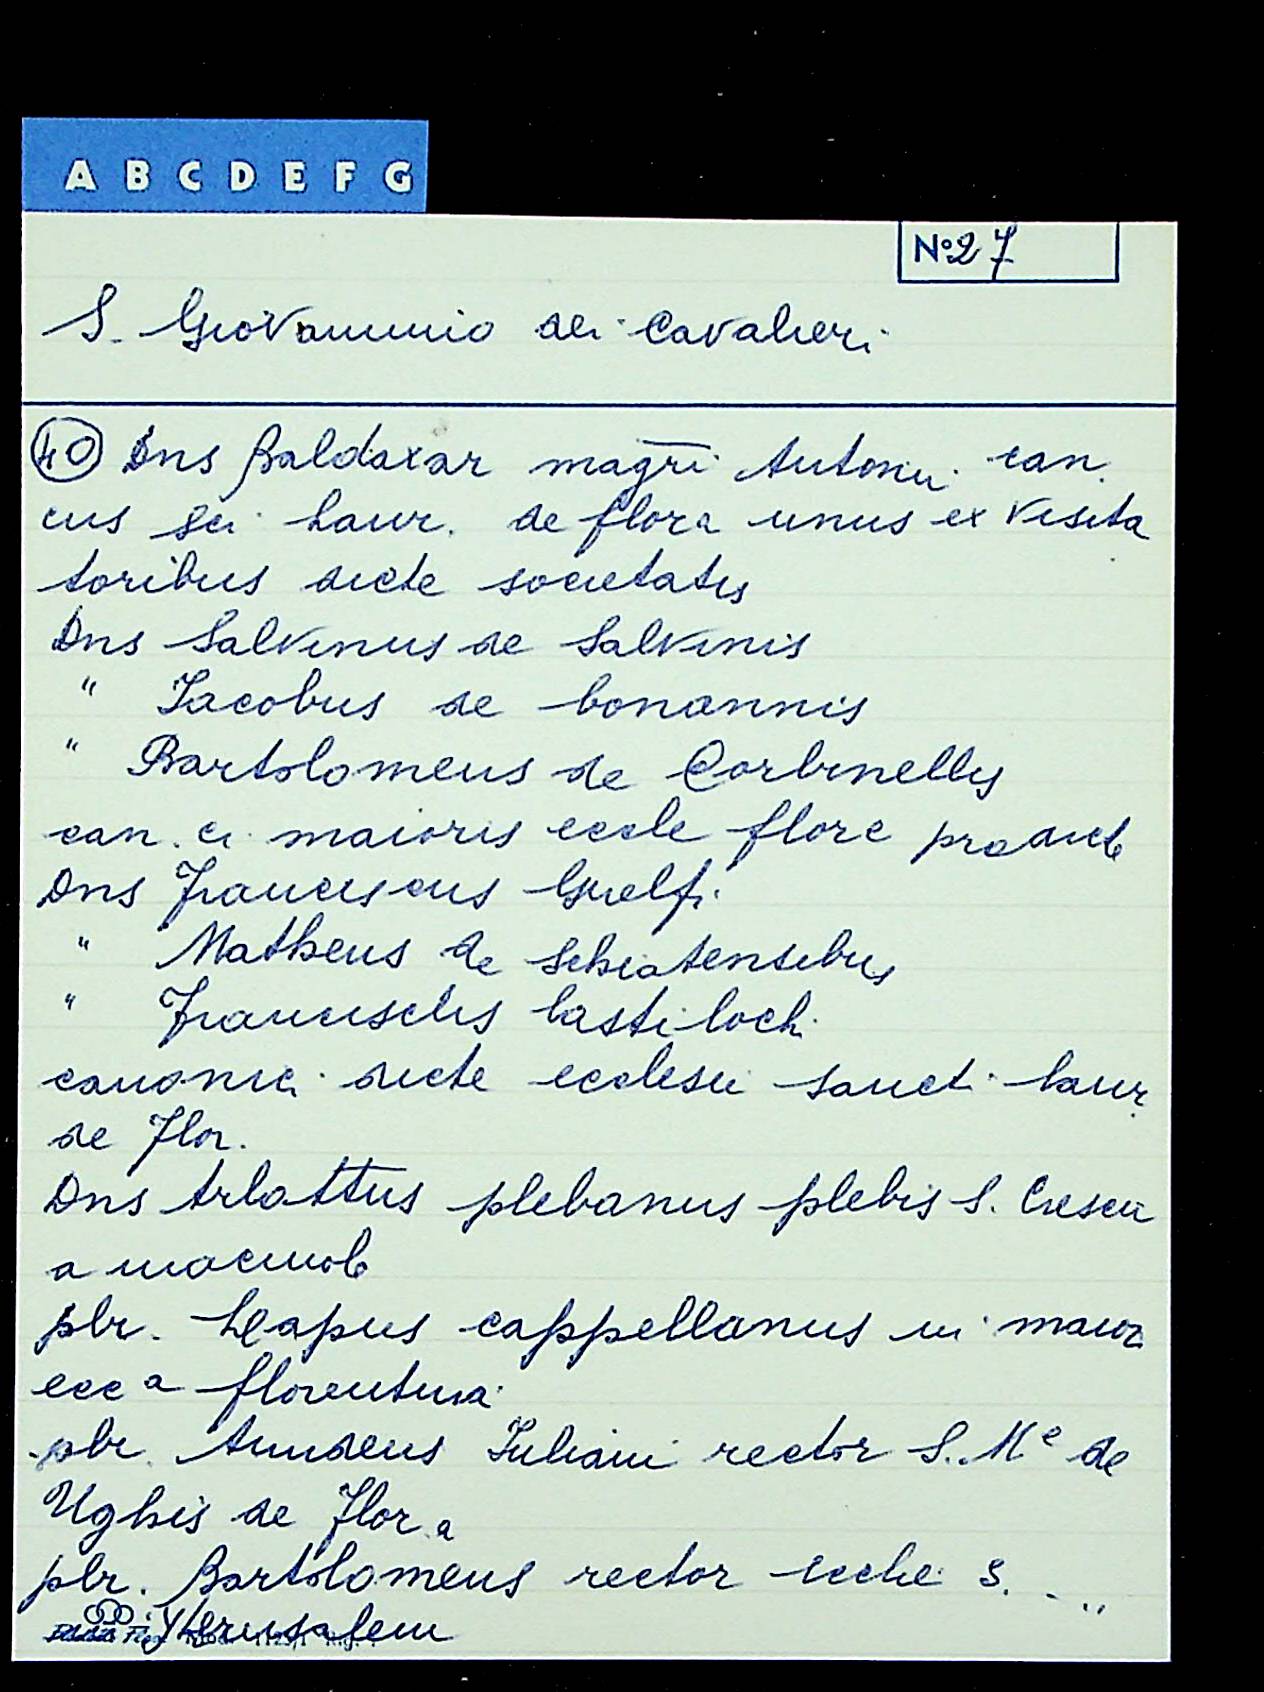 A B C D E F G
No 27
S. Giovannino dei Cavalieri
40 Dns Baldaxar magri Antonii can.
cus sci laur. de flora unus ex visita
toribus dicte societatis
Dns Salvinus de Salvinis
" Jacobus de bonannis
" Bartolomeus de Corbinellis
can. ci maioris eccle flore pro dicte
Dns Franciscus Guelfi
" Matheus de Schiatensibus
" Francischs
canonici dicte ecclesii sancti laur
de Flor.
Dns Arlottus plebanus plebis S. Crescii
a maciuole
pbr. Leapus cappellanus in maior
ecc a florentina
pbr. Amideus Juliani rector S. Me de
Ughis de Flor a
pbr. Bartolomeus rector S. "
Yherusalem